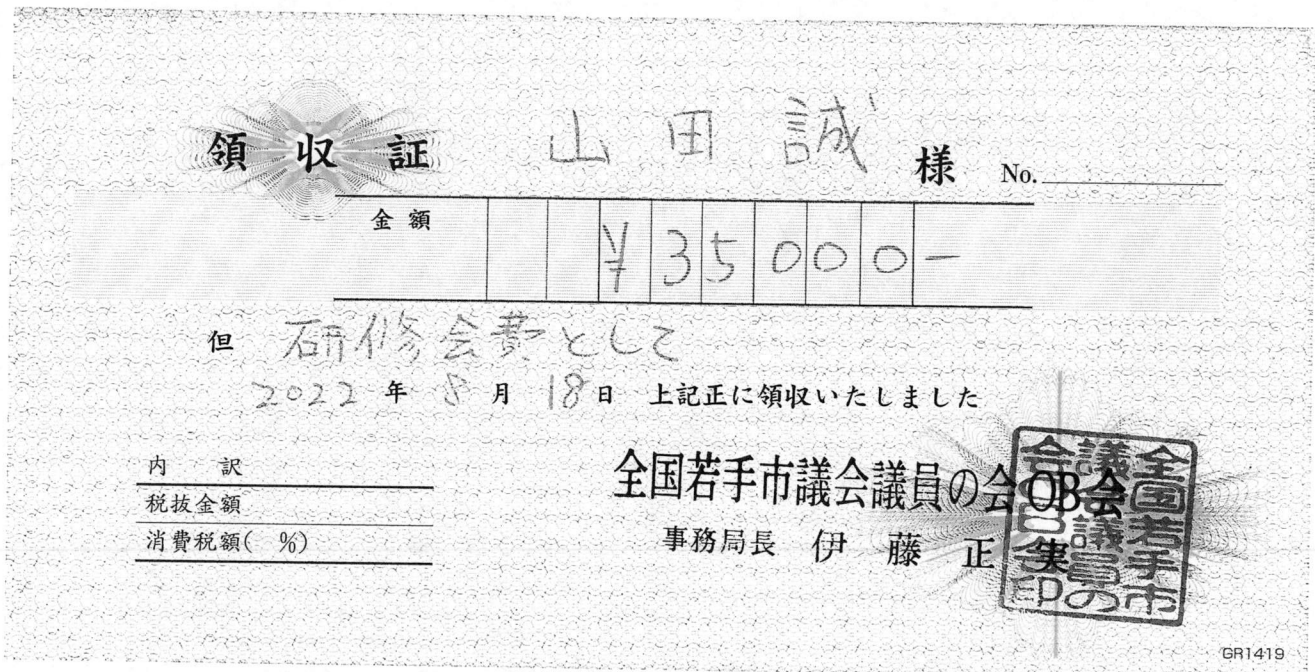 領収証 山田誠 様 No.
金額 ¥35000-
但 研修会費として
2022年8月18日 上記正に領収いたしました
内訳
税抜金額
消費税額( %)
全国若手市議会議員の会OB会
事務局長 伊藤正実
全国若手市議会議員の会OB会印
GR1419